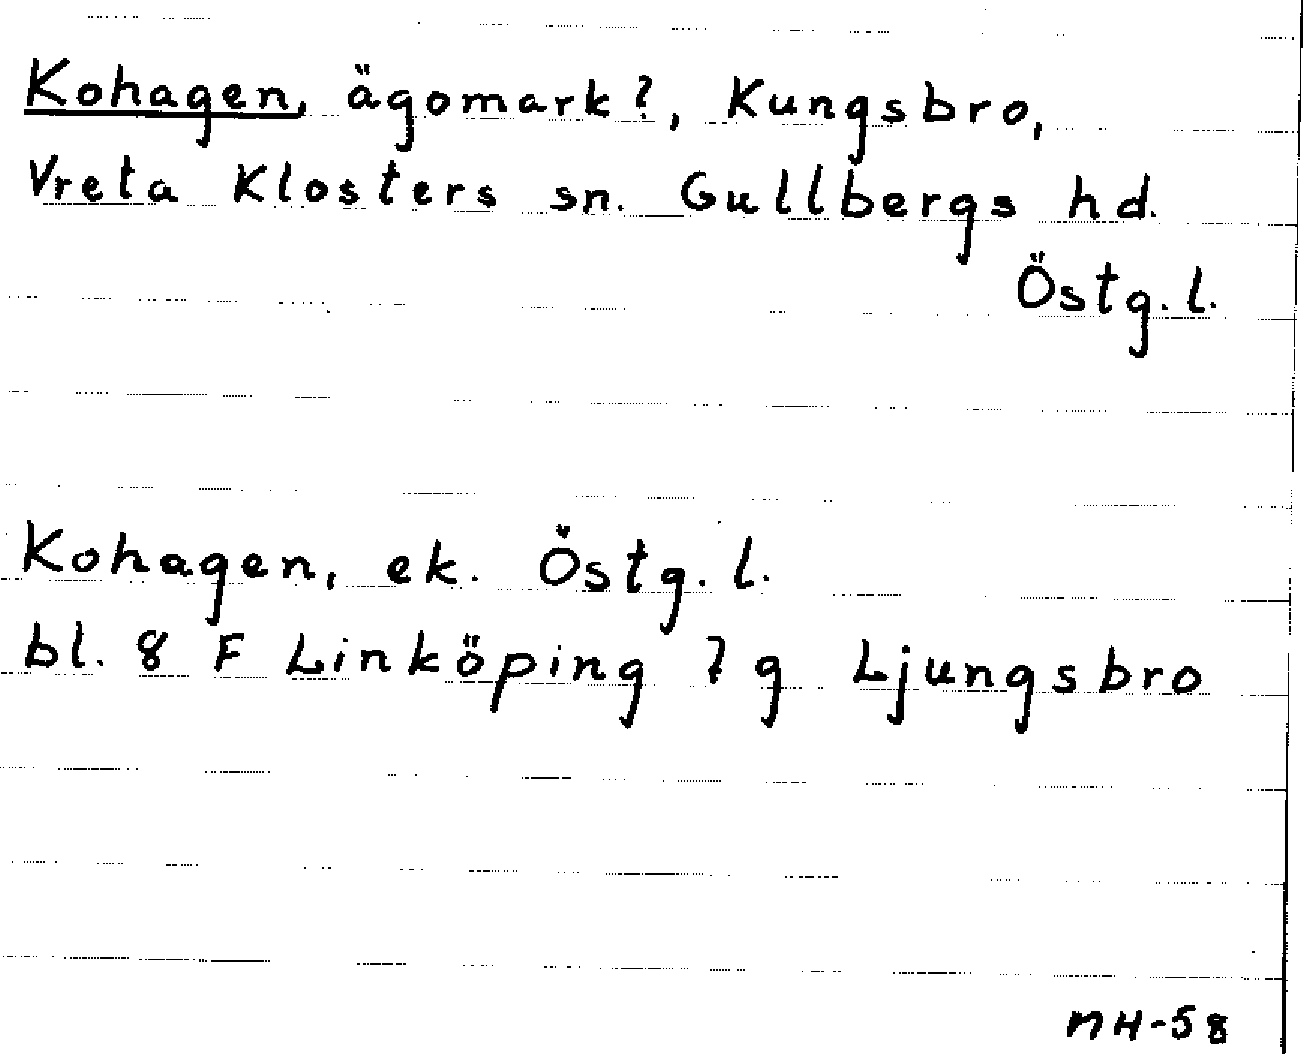 Kohagen, ägomark?, Kungsbro,
Vreta Klosters sn. Gullbergs hd.
Östg. l.
Kohagen, ek. Östg. l.
bl. 8 F Linköping 7 g Ljungsbro
MH-58